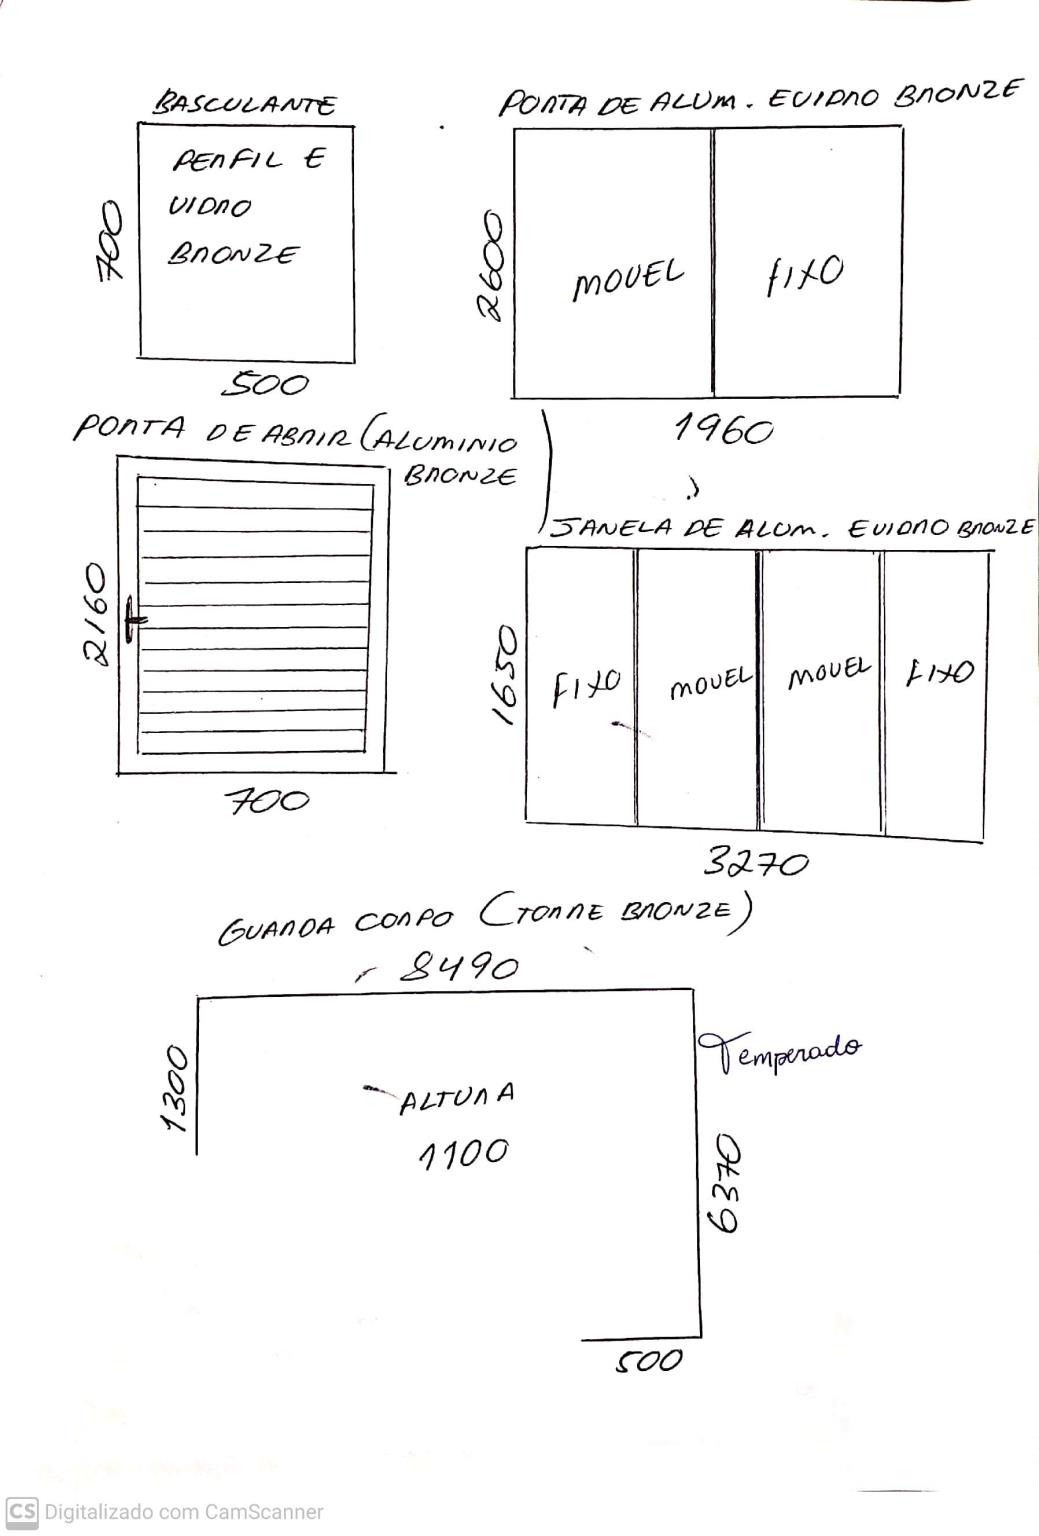 BASCULANTE
PERFIL E
VIDRO
BRONZE
700
500
PORTA DE ALUM. E VIDRO BRONZE
2600
MOVEL
FIXO
1960
PORTA DE ABRIR (ALUMINIO
BRONZE
2160
700
JANELA DE ALUM. E VIDRO BRONZE
1650
FIXO
MOVEL
MOVEL
FIXO
3270
GUARDA CORPO (TORRE BRONZE)
8490
1300
ALTURA
1100
Temperado
6370
500
CS Digitalizado com CamScanner